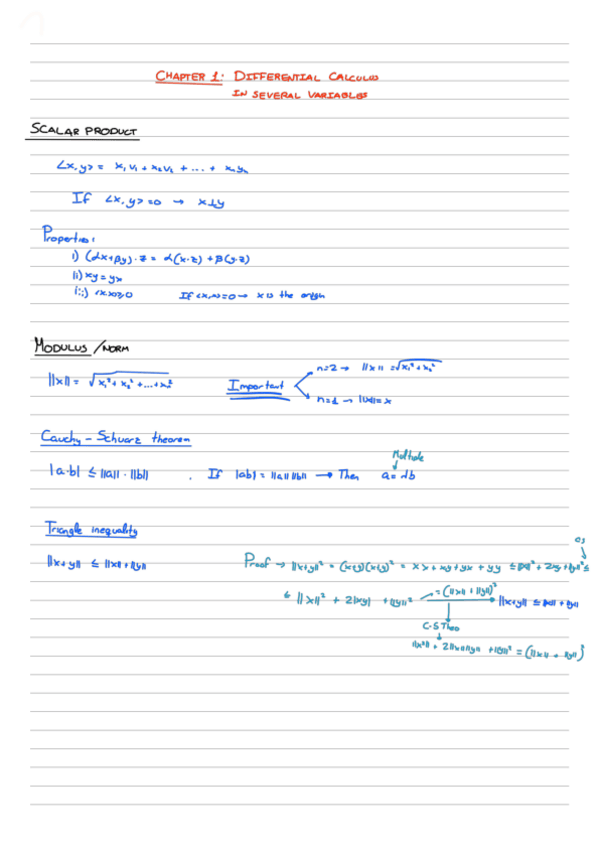 CHAPTER 1: DIFFERENTIAL CALCULUS
IN SEVERAL VARIABLES
SCALAR PRODUCT
<x,y> = x₁v₁ + x₂v₂ + ... + xₙyₙ
If <x,y> = 0 → x⊥y
Properties:
i) (αx+βy)·z = α(x·z) + β(y·z)
ii) xy = yx
iii) <x,x>≥0 If <x,x>=0 → x is the origin
MODULUS / NORM
||x|| = √x₁² + x₂² + ... + xₙ²
Important
n=2 → ||x|| = √x₁² + x₂²
n=1 → ||x|| = x
Cauchy - Schwarz theorem
|a·b| ≤ ||a|| · ||b|| . If |ab| = ||a|| ||b|| → Then a = λb
Multiple
Triangle inequality
||x+y|| ≤ ||x|| + ||y||
Proof → ||x+y||² = (x+y)(x+y)² = xx + xy + yx + yy ≤ ||x||² + 2xy + ||y||² ≤
≤ ||x||² + 2|xy| + ||y||² = (||x|| + ||y||)² → ||x+y|| ≤ ||x|| + ||y||
C·S Theo
||x²|| + 2||x|| ||y|| + ||y||² = (||x|| + ||y||)